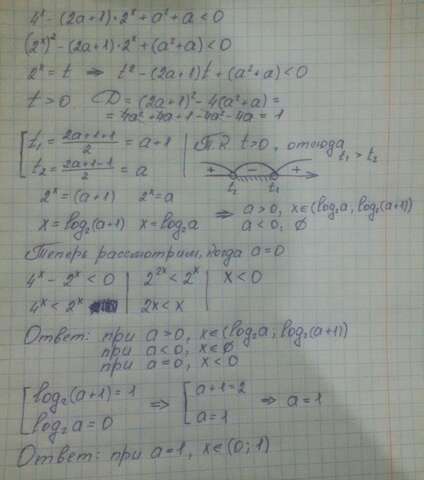 4ˣ - (2a+1)·2ˣ + a² + a < 0
(2ˣ)² - (2a+1)·2ˣ + (a²+a) < 0
2ˣ = t ⇒ t² - (2a+1)t + (a²+a) < 0
t > 0 D = (2a+1)² - 4(a²+a) =
= 4a² + 4a + 1 - 4a² - 4a = 1
[ t₁ = (2a+1+1)/2 = a+1 | Т.к t>0, отсюда
t₂ = (2a+1-1)/2 = a | + t₂ - t₁ + t₁ > t₂
2ˣ = (a+1) 2ˣ = a
x = log₂(a+1) x = log₂a ⇒ a>0, x∈(log₂a; log₂(a+1))
a<0, ∅
Теперь рассмотрим, когда a=0
4ˣ - 2ˣ < 0 | 2²ˣ < 2ˣ | x < 0
4ˣ < 2ˣ | 2x < x
Ответ: при a>0, x∈(log₂a; log₂(a+1))
при a<0, x∈∅
при a=0, x<0
[ log₂(a+1) = 1 ⇒ [ a+1=2 ⇒ a=1
log₂a = 0 a=1
Ответ: при a=1, x∈(0;1)